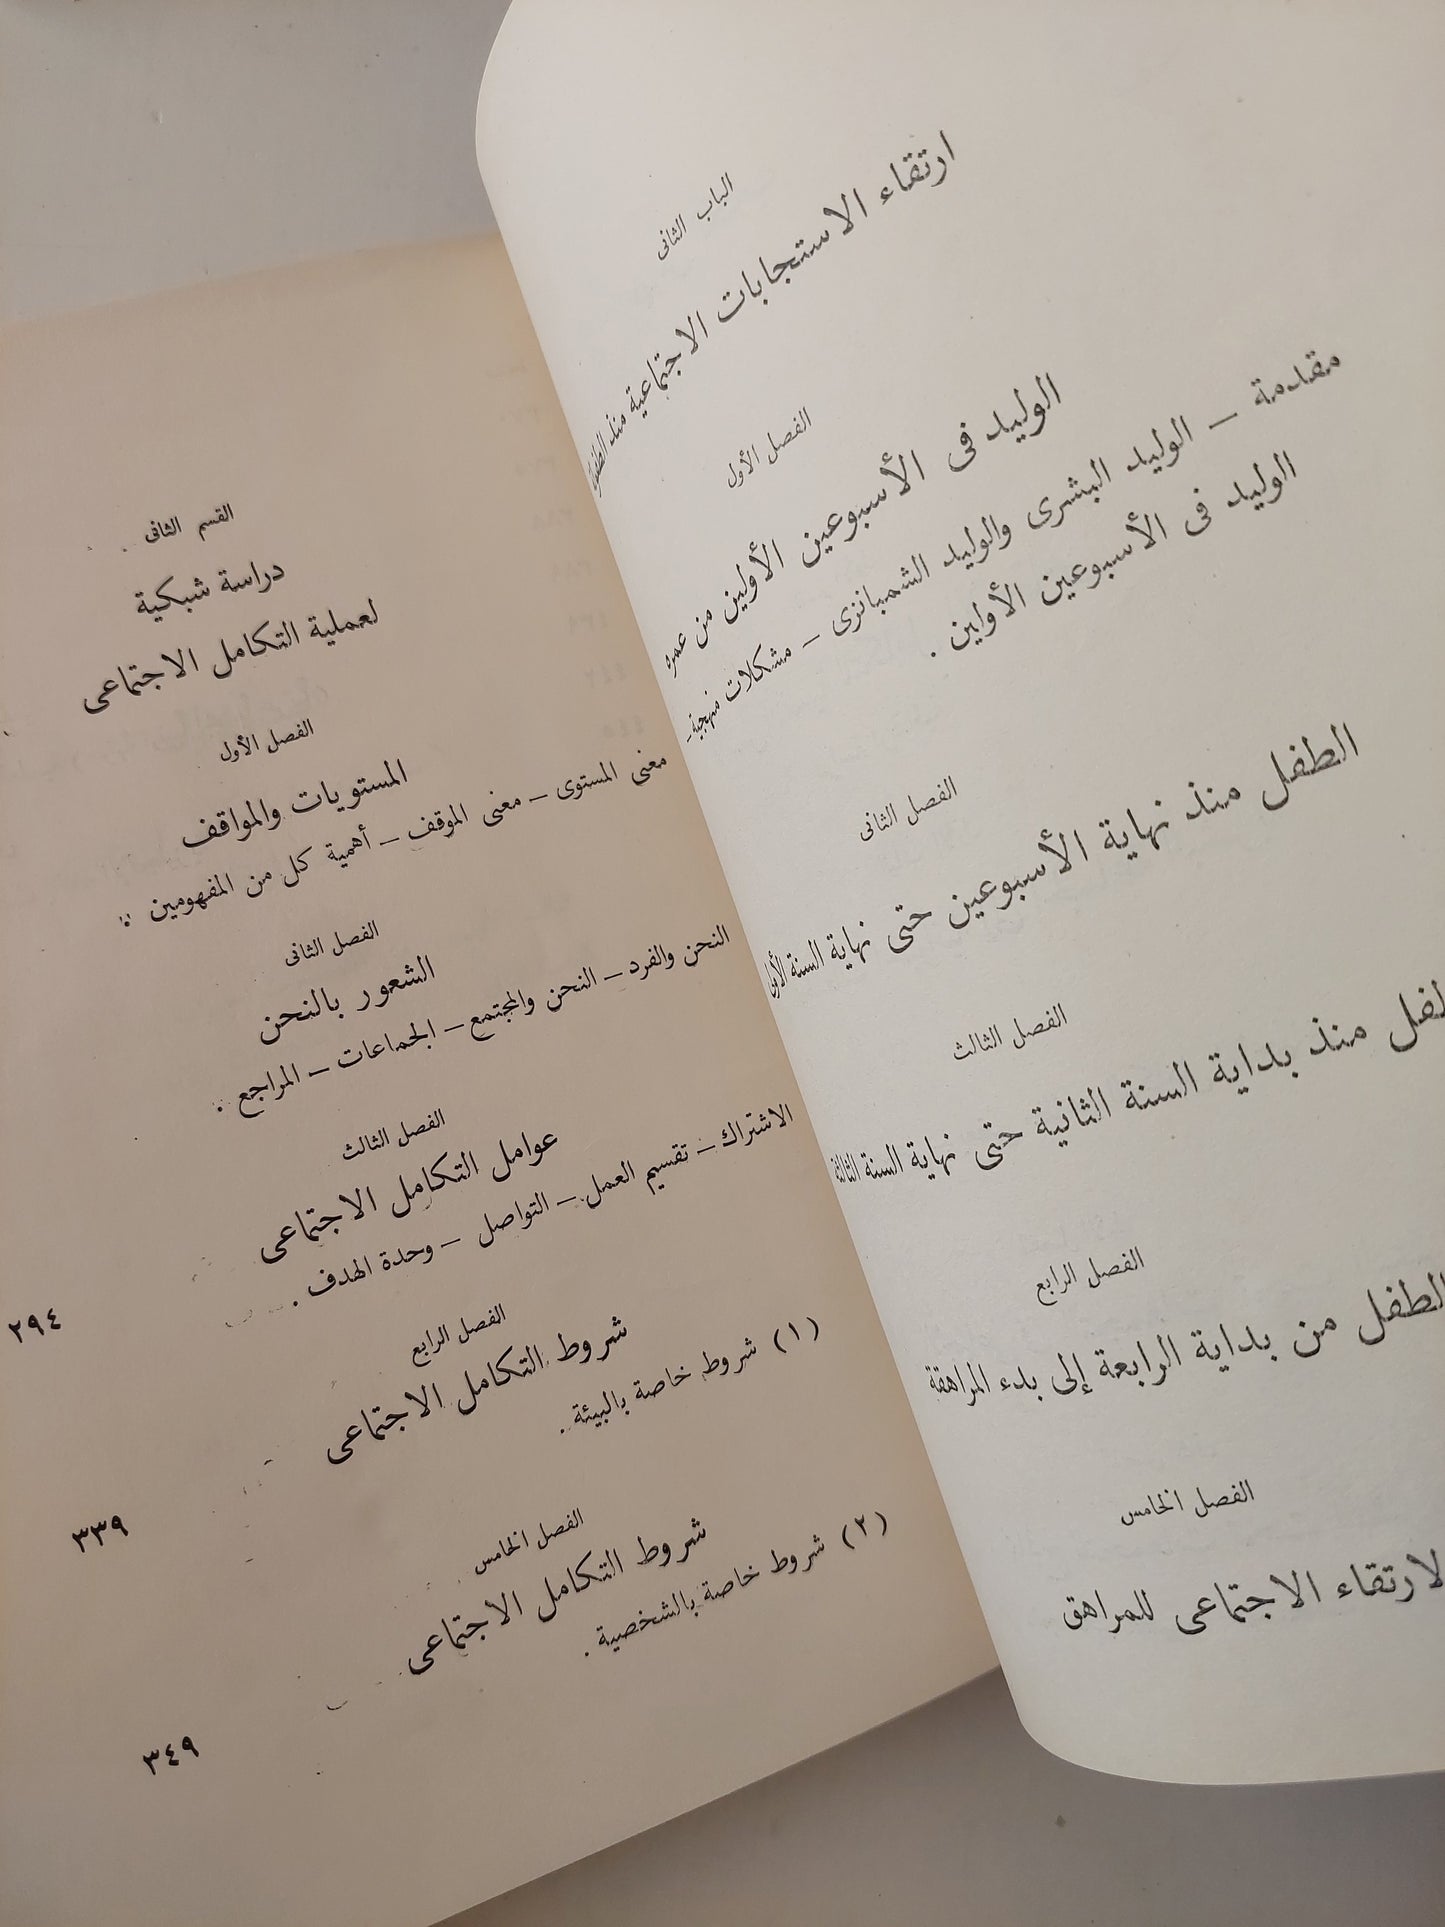 الباب الثانى
ارتقاء الاستجابات الاجتماعية منذ الطفولة
الفصل الأول
الوليد فى الأسبوعين الأولين من عمره
مقدمة – الوليد البشرى والوليد الشمبانزى – مشكلات منهجية –
الوليد فى الأسبوعين الأولين .
الفصل الثانى
الطفل منذ نهاية الأسبوعين حتى نهاية السنة الأولى
الفصل الثالث
منذ بداية السنة الثانية حتى نهاية السنة الثالثة
الفصل الرابع
الطفل من بداية الرابعة إلى بدء المراهقة
الفصل الخامس
الارتقاء الاجتماعى للمراهق
القسم الثانى
دراسة شبكية
لعملية التكامل الاجتماعى
الفصل الأول
المستويات والمواقف
معنى المستوى – معنى الموقف – أهمية كل من المفهومين .
الفصل الثانى
الشعور بالنحن
النحن والفرد – النحن والمجتمع – الجماعات – المراجع .
الفصل الثالث
عوامل التكامل الاجتماعى
الاشتراك – تقسيم العمل – التواصل – وحدة الهدف .
٢٩٤
الفصل الرابع
شروط التكامل الاجتماعى
(١) شروط خاصة بالبيئة .
٣٣٩
الفصل الخامس
شروط التكامل الاجتماعى
(٢) شروط خاصة بالشخصية .
٣٤٩